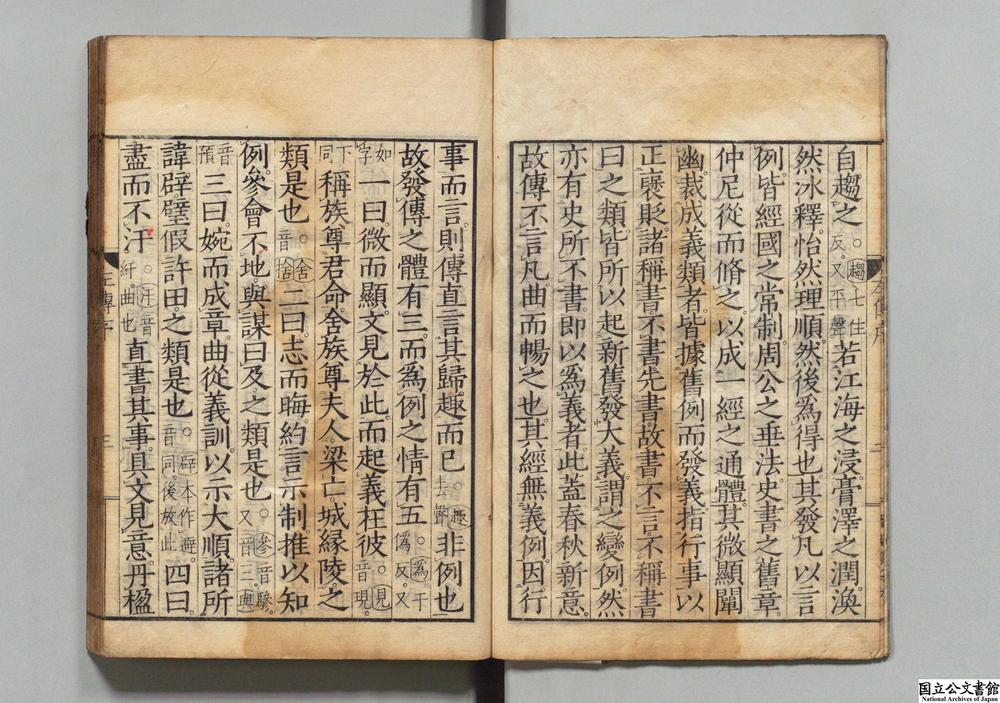 自趨之○趨七住反又平聲若江海之浸膏澤之潤渙
然冰釋怡然理順然後為得也其發凡以言
例皆經國之常制周公之垂法史書之舊章
仲尼從而脩之以成一經之通體其微顯闡
幽裁成義類者皆據舊例而發義指行事以
正襃貶諸稱書不書先書故書不言不稱書
曰之類皆所以起新舊發大義謂之變例然
亦有史所不書即以為義者此蓋春秋新意
故傳不言凡曲而暢之也其經無義例因行
事而言則傳直言其歸趣而已○趣去聲非例也
故發傳之體有三而為例之情有五○為于偽反又
如字一曰微而顯文見於此而起義在彼○見音現
下同稱族尊君命舍族尊夫人梁亡城緣陵之
類是也○舍音捨二曰志而晦約言示制推以知
例參會不地與謀曰及之類是也○參音驂又音三與
音預三曰婉而成章曲從義訓以示大順諸所
諱辟璧假許田之類是也○辟本作避音同後放此四曰
盡而不汙○汙音紆曲也直書其事具文見意丹楹
左傳序
二
左傳序
三
国立公文書館
National Archives of Japan